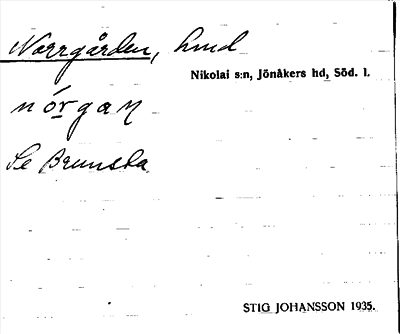 Norrgården, hmd
Nikolai s:n, Jönåkers hd, Söd. l.
nórgaɳ
Se Brunsta
STIG JOHANSSON 1935.